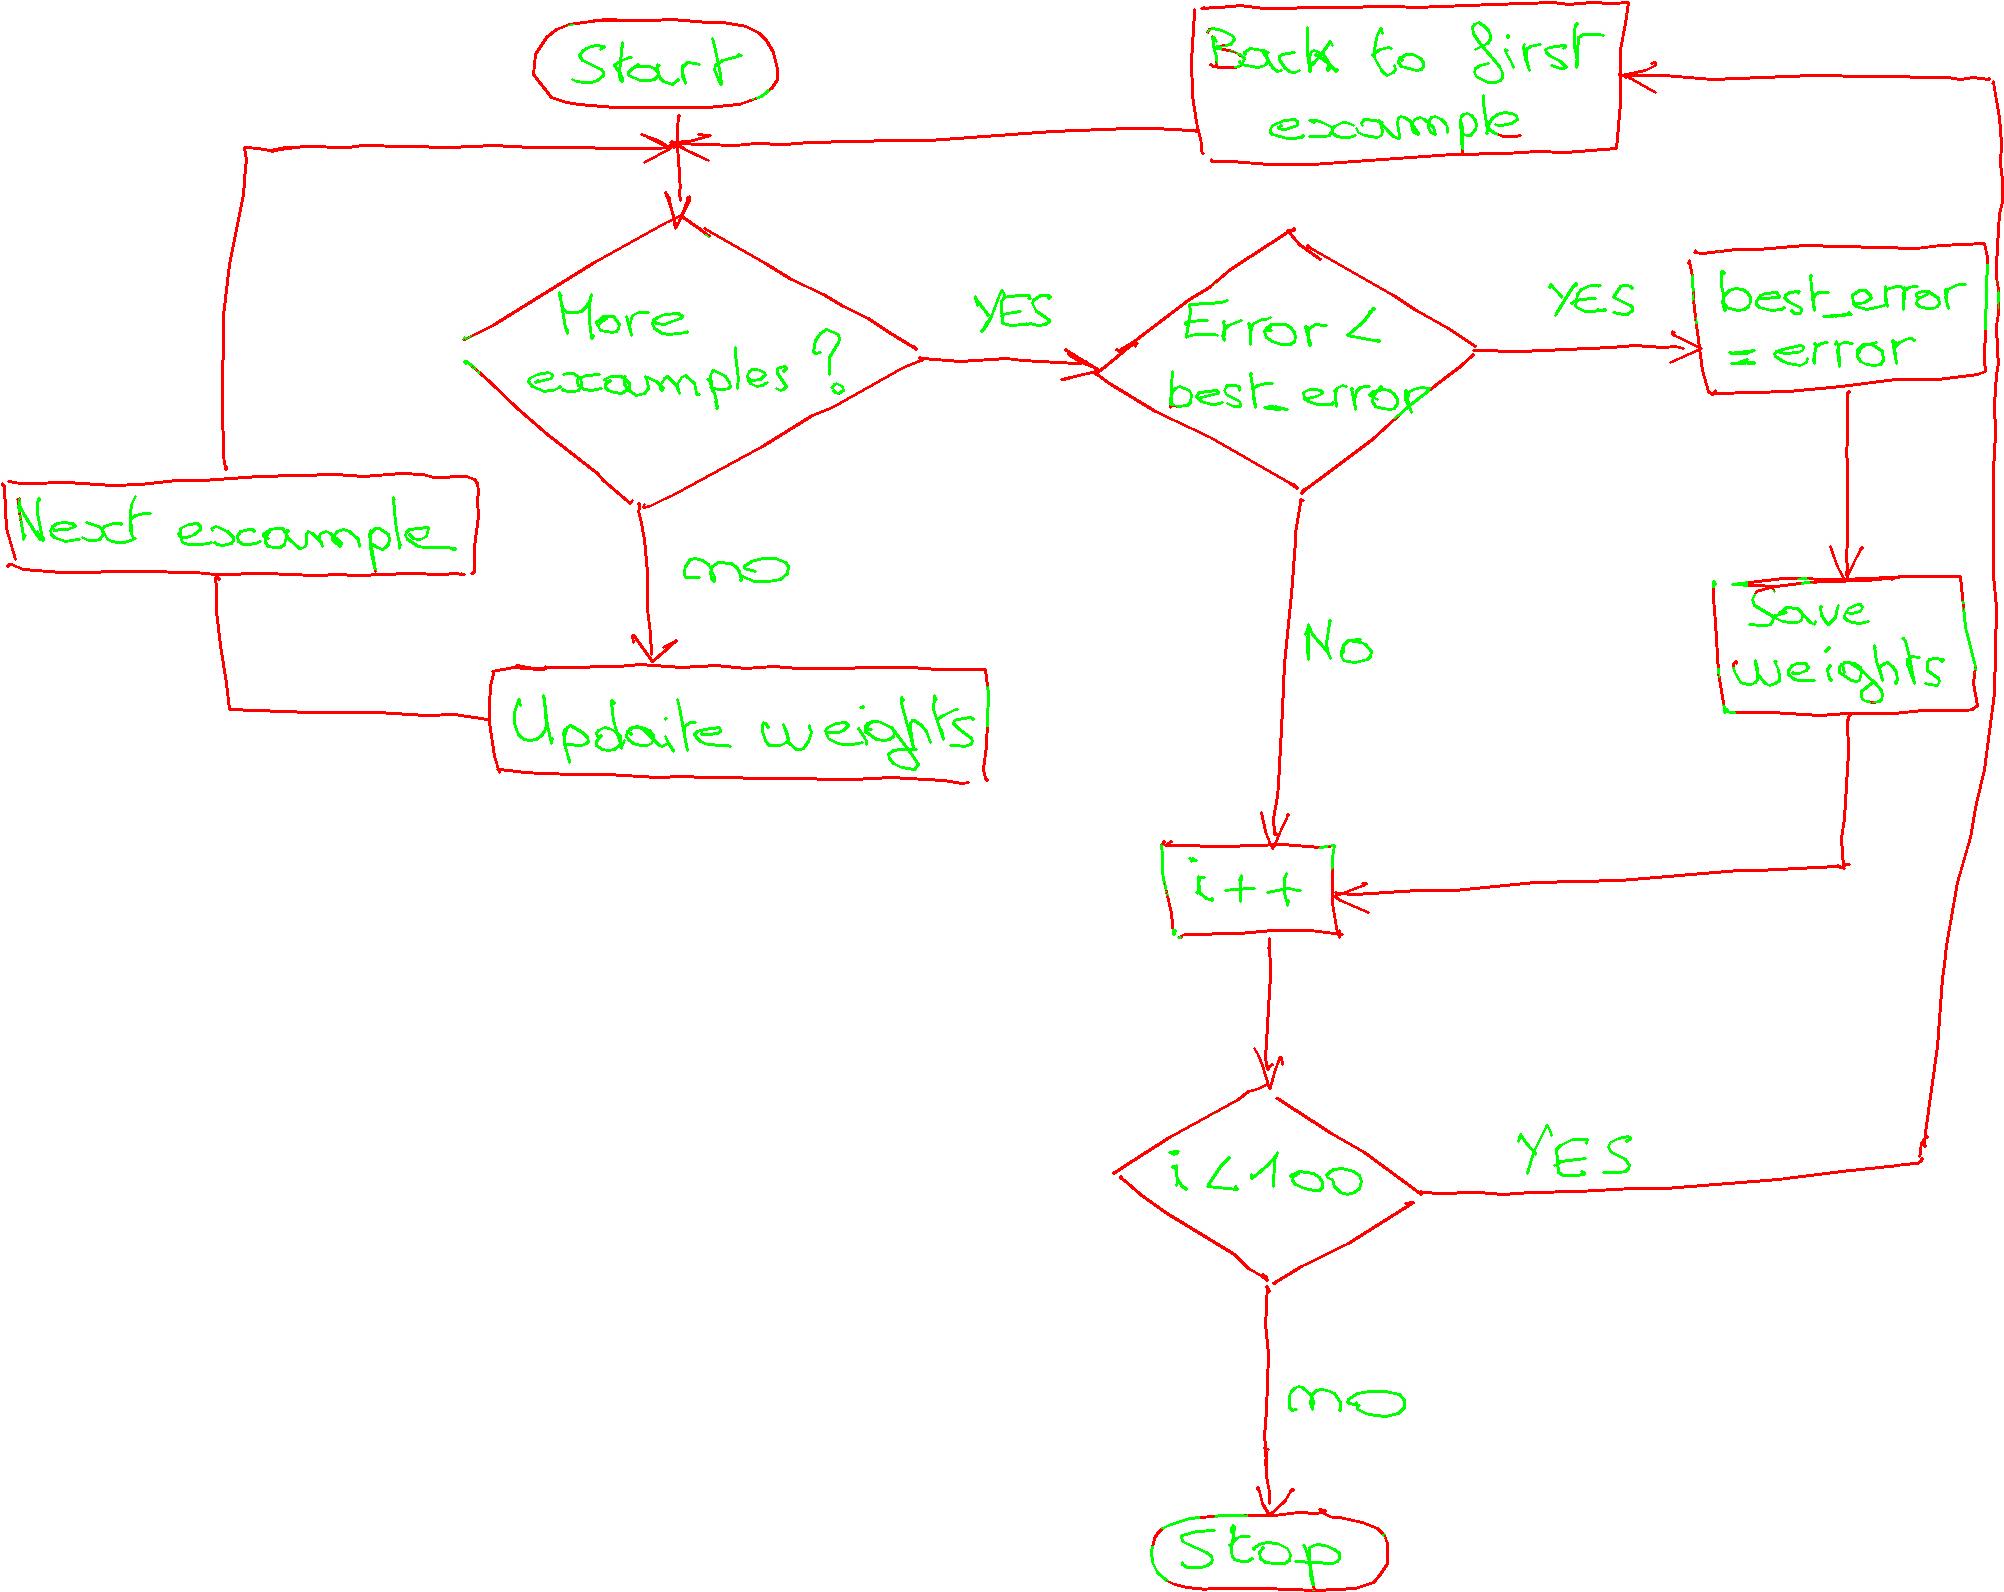 Start
Back to first
example
More
examples ?
YES
Error <
best_error
YES
best_error
= error
Next example
no
Updaite weights
No
Save
weights
i++
i<100
YES
no
Stop